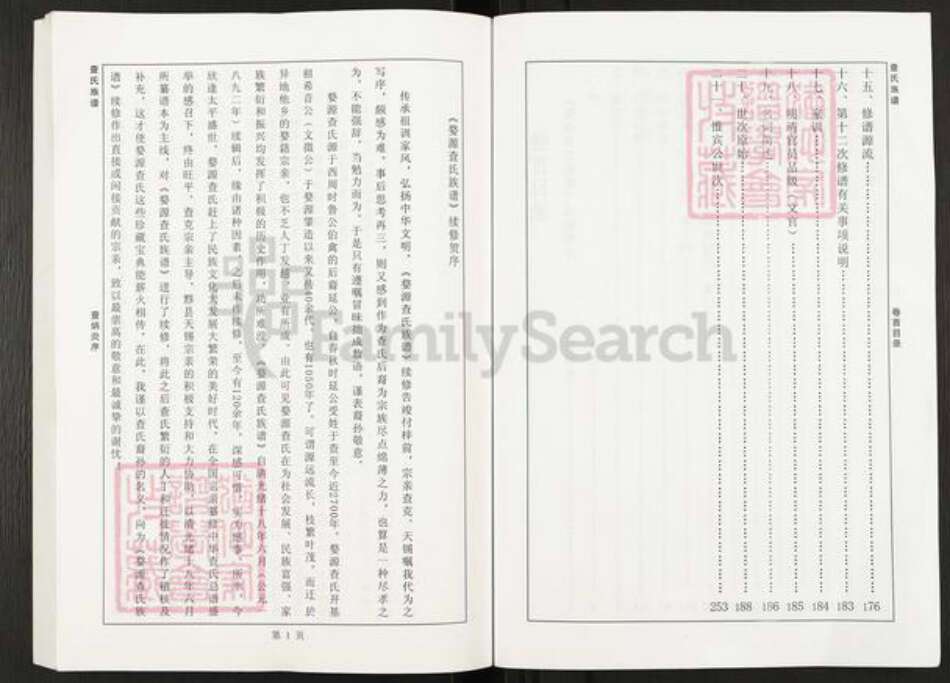 查氏族谱
卷首目录
十五、修谱源流 176
十六、第十二次修谱有关事项说明 183
十七、家训 184
十八、明清官员品级（文官） 185
十九、 186
二十、世次原始 188
二十一、惟宾公世次 253
查氏族谱
查炳炎序
《婺源查氏族谱》续修贺序
传承祖训家风，弘扬中华文明，《婺源查氏族谱》续修告竣付梓前，宗亲查克、天锡嘱我代为之
写序，颇感为难，事后思考再三，则又感到作为查氏后裔为宗族尽点绵薄之力，也算是一种尽孝之
为，不能强辞，当勉力而为。于是只有遵嘱冒昧拙成数语，谨表裔孙敬意。
婺源查氏源于西周时鲁公伯禽的后裔延公，自春秋时延公受姓于查至今近2700年。婺源查氏开基
祖希音公（文徵公）于婺源肇造以来又袭40余代，也有1050年了。可谓源远流长，枝繁叶茂。而迁於
异地他乡的婺籍宗亲，也不乏人丁发越，业有所成。由此可见婺源查氏在为社会发展、民族富强、家
族繁衍和振兴均发挥了积极的历史作用，功所难没。《婺源查氏族谱》自清光绪十八年六月（公元一
八九二年）续辑后，缘由诸种因素，之后未作续修，至今有120余年，深感可惜，实为憾事。所幸，今
欣逢太平盛世，婺源查氏赶上了民族文化大发展大繁荣的美好时代，在全国宗亲纂修中华查氏总谱盛
举的感召下，终由旺平、查克宗亲主导，黟县天锡宗亲的积极支持和大力协助，以清光绪十八年六月
所纂谱本为主线，对《婺源查氏族谱》进行了续修，将此之后查氏繁衍的人丁和迁徙情况作了稽核及
补充，这才使婺源查氏这些珍藏宝典能薪火相传，在此，我谨以查氏裔孙的名义，向为《婺源查氏族
谱》续修作出直接或间接贡献的宗亲，致以最崇高的敬意和最诚挚的谢忱！
第 1 页
FamilySearch